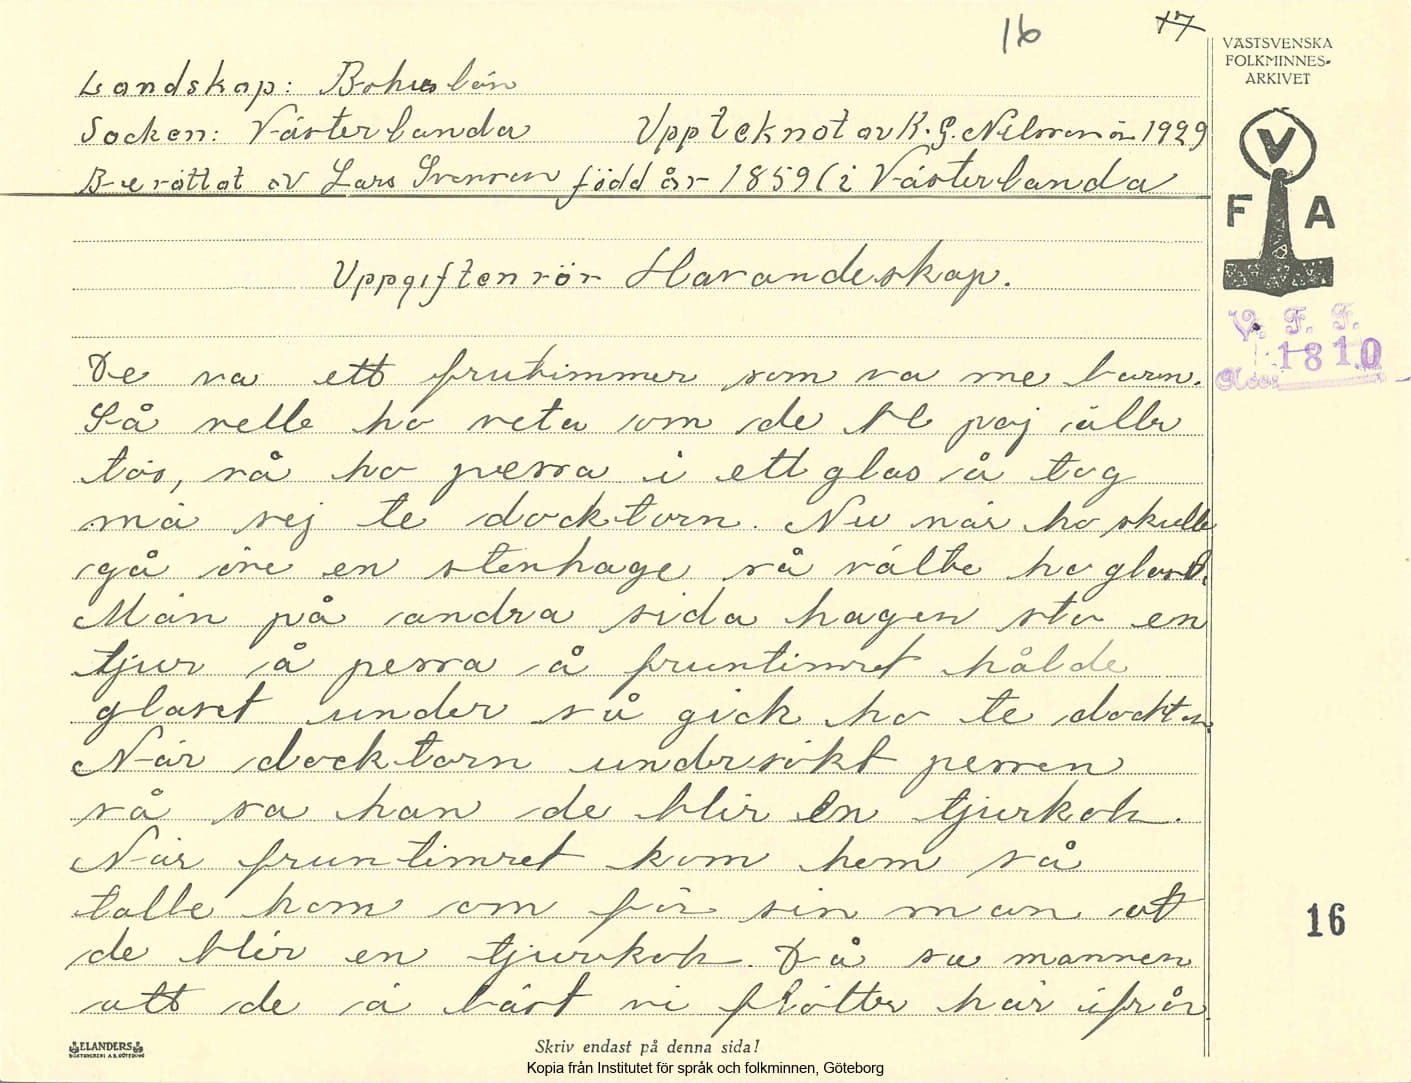 16 17
VÄSTSVENSKA
FOLKMINNES-
ARKIVET
Landskap: Bohuslän
Socken: Västerlanda Upptecknat av K. G. Nilsson år 1929
Berättat av Lars Svensson född år 1859 i Västerlanda
V
F A
Uppgiften rör Havandeskap.
V. F. F.
1810
De va ett frutimmer som va me barn.
Så velle ho veta om de ble poj äller
tös, så ho pessa i ett glas å tog
mä sej te docktorn. Nu när ho skulle
gå över en stenhage så välte ho glaset.
Män på andra sida hagen sto en
tjur å pessa å fruntimret hålde
glaset under så gick ho te docktorn.
När docktorn undersökt pessen
så sa han de blir en tjurkalv.
När fruntimret kom hem så
talte hom om för sin man at
de blir en tjurkalv. Då sa mannen
att de ä bäst vi flötter här ifrån
16
ELANDERS
BOKTRYCKERI A.B. GÖTEBORG
Skriv endast på denna sida!
Kopia från Institutet för språk och folkminnen, Göteborg